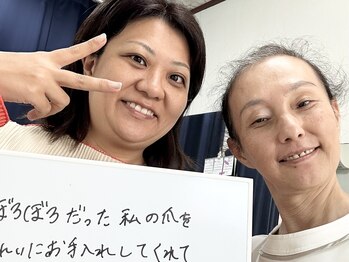 ぼろぼろだった私の爪を
れいにお手入れしてくれて